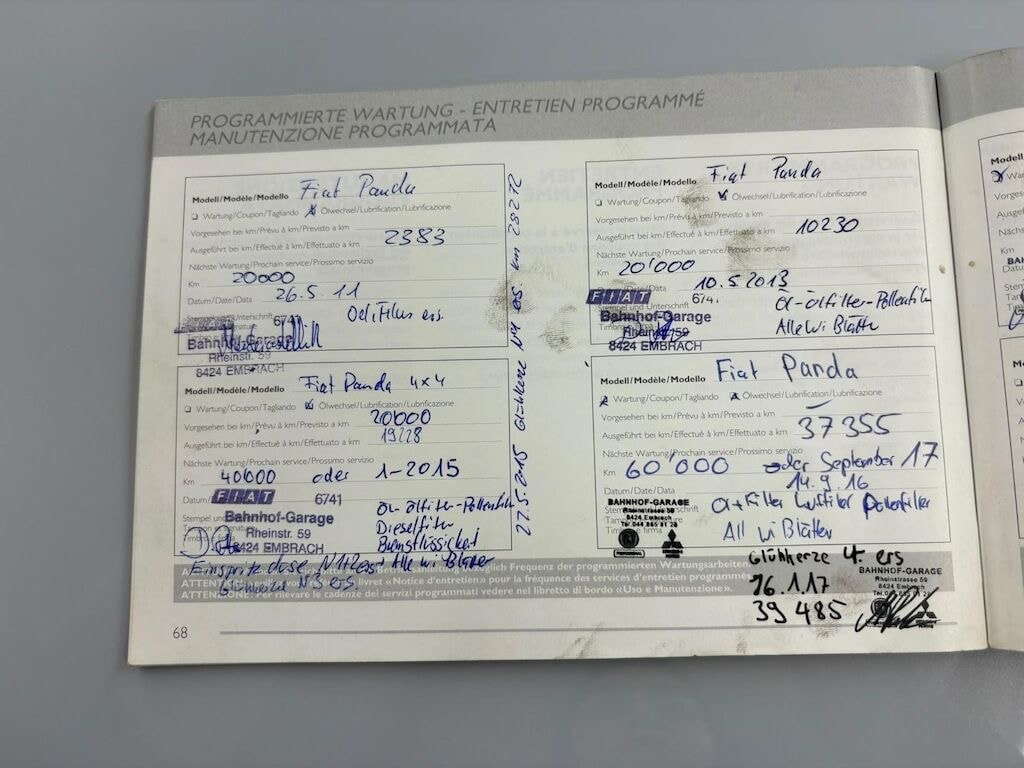 PROGRAMMIERTE WARTUNG - ENTRETIEN PROGRAMMÉ
MANUTENZIONE PROGRAMMATA
Modell/Modèle/Modello Fiat Panda
Wartung/Coupon/Tagliando Ölwechsel/Lubrification/Lubrificazione
Vorgesehen bei km/Prévu à km/Previsto a km
Ausgeführt bei km/Effectué à km/Effettuato a km 2383
Nächste Wartung/Prochain service/Prossimo servizio
Km 20000
Datum/Date/Data 26.5.11
ers.
6741
Bahnhof-Garage
Rheinstr. 59
8424 EMBRACH
Modell/Modèle/Modello Fiat Panda 4x4
Wartung/Coupon/Tagliando Ölwechsel/Lubrification/Lubrificazione
Vorgesehen bei km/Prévu à km/Previsto a km 20000
Ausgeführt bei km/Effectué à km/Effettuato a km 19228
Nächste Wartung/Prochain service/Prossimo servizio
Km 40000 oder 1-2015
Datum/
FIAT 6741
Bahnhof-Garage
Rheinstr. 59
8424 EMBRACH
Öl-ölfilter-Pollenfilter
Dieselfilter
Bremsflüssickeit
Einspritzdüse N1+2 ers + Alle Wi Blätter
Glühkerze N3 ers.
27.5.2015 Glühkerze N1 ers. km 28272
Modell/Modèle/Modello Fiat Panda
Wartung/Coupon/Tagliando Ölwechsel/Lubrification/Lubrificazione
Vorgesehen bei km/Prévu à km/Previsto a km
Ausgeführt bei km/Effectué à km/Effettuato a km 10230
Nächste Wartung/Prochain service/Prossimo servizio
Km 20'000
Datum/Date/Data 10.5.2013
FIAT 674
Stempel und Unterschrift
Öl-ölfilter-Pollenfilter
Alle Wi Blätter
Bahnhof-Garage
Rheinstr. 59
8424 EMBRACH
Modell/Modèle/Modello Fiat Panda
Wartung/Coupon/Tagliando Ölwechsel/Lubrification/Lubrificazione
Vorgesehen bei km/Prévu à km/Previsto a km
Ausgeführt bei km/Effectué à km/Effettuato a km 37355
Nächste Wartung/Prochain service/Prossimo servizio
Km 60'000 oder September 17
Datum/Date/Data 14.9.16
BAHNHOF-GARAGE
Rheinstrasse 59
8424 Embrach
Tel. 044 865 01 28
Öl+Filter Luftfilter Pollenfilter
All Wi Blätter
Glühkerze 4. ers
16.1.17
39 485
BAHNHOF-GARAGE
Rheinstrasse 59
8424 Embrach
Frequenz der programmierten Wartungsarbeiten
livret «Notice d'entretien» pour la fréquence des services d'entretien programmés
ATTENZIONE: Per rilevare le cadenze dei servizi programmati vedere nel libretto di bordo «Uso e Manutenzione».
68
Modell